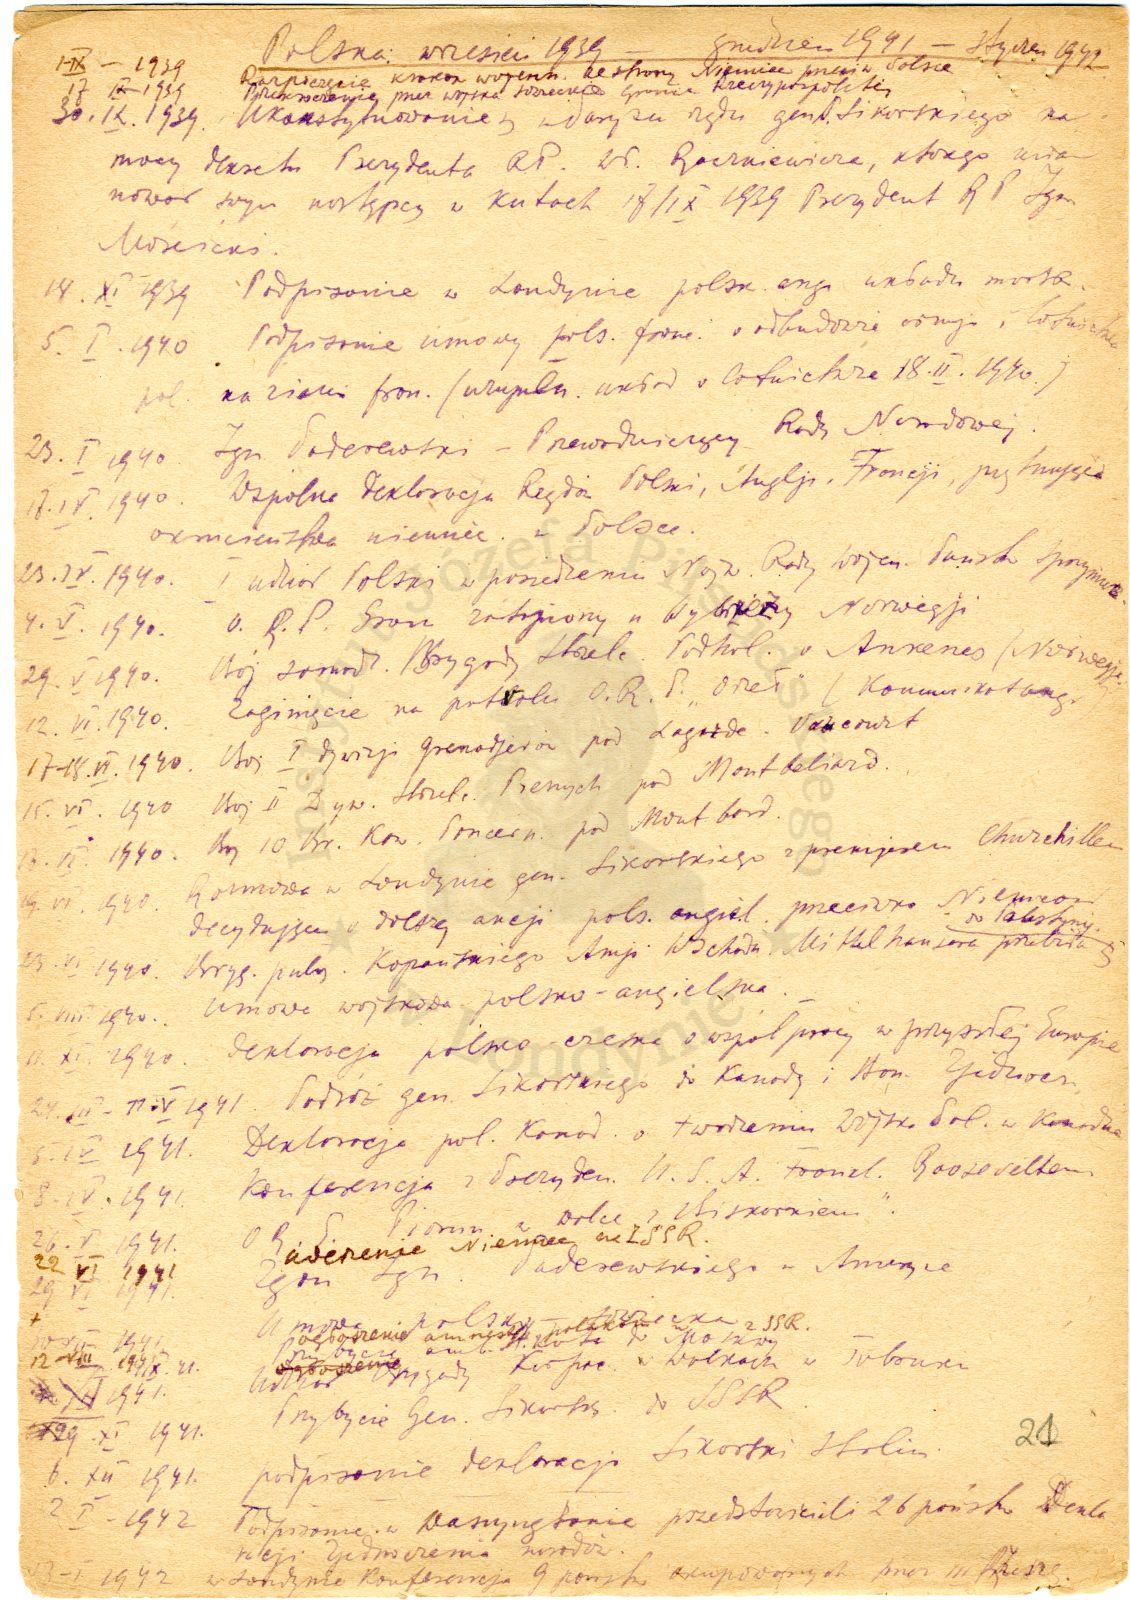 Polska: wrzesień 1939 — grudzień 1941 — styczeń 1942
1-IX – 1939 Rozpoczęcie kroków wojenn. ze strony Niemiec przeciw Polsce
17 IX-1939 Przekroczenie przez wojska sowieckie granic Rzeczypospolitej
30.IX.1939. Ukonstytuowanie w Paryżu rządu gen. Sikorskiego na
mocy dekretu Prezydenta RP. Wł. Raczkiewicza, którego mia-
nował swym następcą w Kutach 17/IX 1939 Prezydent RP Ign
Mościcki.
18. XI 1939 Podpisanie w Londynie polsk. ang. układu morsk.
5. I. 1940 Podpisanie umowy pols. franc. o odbudowie armji i lotnictwa
pol. na ziemi fran. (uzupełn. układ o lotnictwie 18.II.1940.)
23. I 1940 Ign Paderewski – Przewodniczący Rady Narodowej.
17.IV. 1940. Wspólna deklaracja Rządów Polski, Anglji, Francji,
okrucieństwa niemiec. w Polsce.
23.IV. 1940. I udział Polski w posiedzeniu Najw. Rady Wojen. Państw Sprzymierz.
4. V. 1940. O. R. P. Grom zatopiony u wybrzeży Norwegji
29. V 1940. Bój samodz. Brygady Strzelc. Podhal. o Ankenes (Norwegja)
12. VI. 1940. Zaginięcie na patrolu O. R. P. „Orzeł” (Komunikat ang.
17-18.VI. 1940. Boj I dywizji Grenadjerów pod Lagarde.
15. VI. 1940 Boj II Dyw. Strzelc. Pieszych pod Montbeliard.
1940. Boj 10 Br. Kaw. Pancern. pod Montbard.
19. VI. 1940. Rozmowa w Londynie gen. Sikorskiego z premjerem Churchillem
decydująca o dalszej akcji pols. angiel. przeciwko Niemcom
23. VI 1940. Bryg. Kopańskiego Armji Wschodu Mittelhausera przebiła się do Palestyny.
5. VIII 1940. Umowa wojskowa polsko-angielska.
11. XI. 1940. Deklaracja polsko-czeska o współpracy w przyszłej Europie
24. III - 11.V 1941. Podróż gen. Sikorskiego do Kanady i Stan. Zjednocz.
5. IV 1941. Deklaracja pol. Kanad. o tworzeniu Wojska Pol. w Kanadzie
8. IV. 1941. Konferencja z Prezyden. U. S. A. Frankl. Rooseveltem
26. V 1941. O R P. Piorun w walce z „Biskarkiem”.
22 VI 1941 uderzenie Niemiec na ZSSR.
29 VI 1941. Zgon Ign. Paderewskiego w Ameryce
Umowa polsko sowiecka
ogłoszenie amnestji polaków w ZSSR.
12-VIII 1941 do Moskwy
Udział Brygady Karpac. w walkach w Tobruku
1941. Przybycie Gen. Sikorsk. do SSSR.
29. XI 1941.
6. XII 1941. podpisanie deklaracji Sikorski Stalin.
2 I - 1942 Podpisanie w Waszyngtonie przedstawicieli 26 państw Dekla
racji Zjednoczenia narodów.
13-I 1942 w Londynie Konferencja 9 państw okupowanych przez III Rzeszę.
21